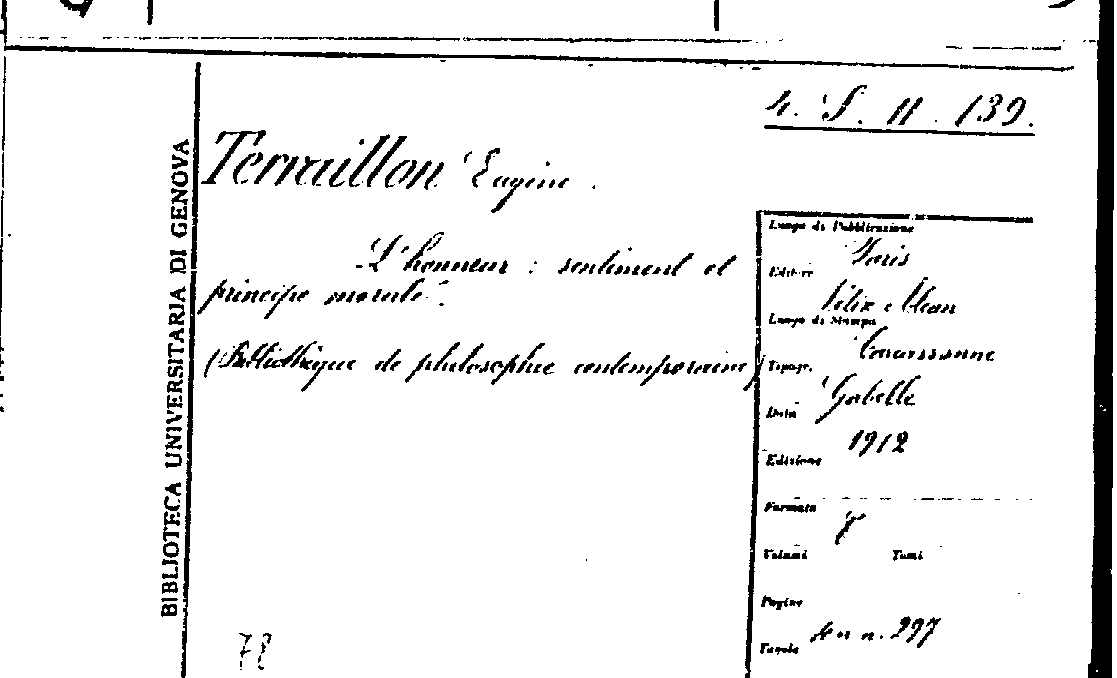 4. S. II. 139.
BIBLIOTECA UNIVERSITARIA DI GENOVA
Terraillon Eugène.
L'honneur : sentiment et
principe morale.
(Bibliothèque de philosophie contemporaine)
Luogo di Pubblicazione
Paris
Editore
Félix Alcan
Luogo di Stampa
Carcassonne
Tipogr.
Gabelle
Data
1912
Edizione
Formato
8
Volumi Tomi
Pagine
Tavole
n. 297
78